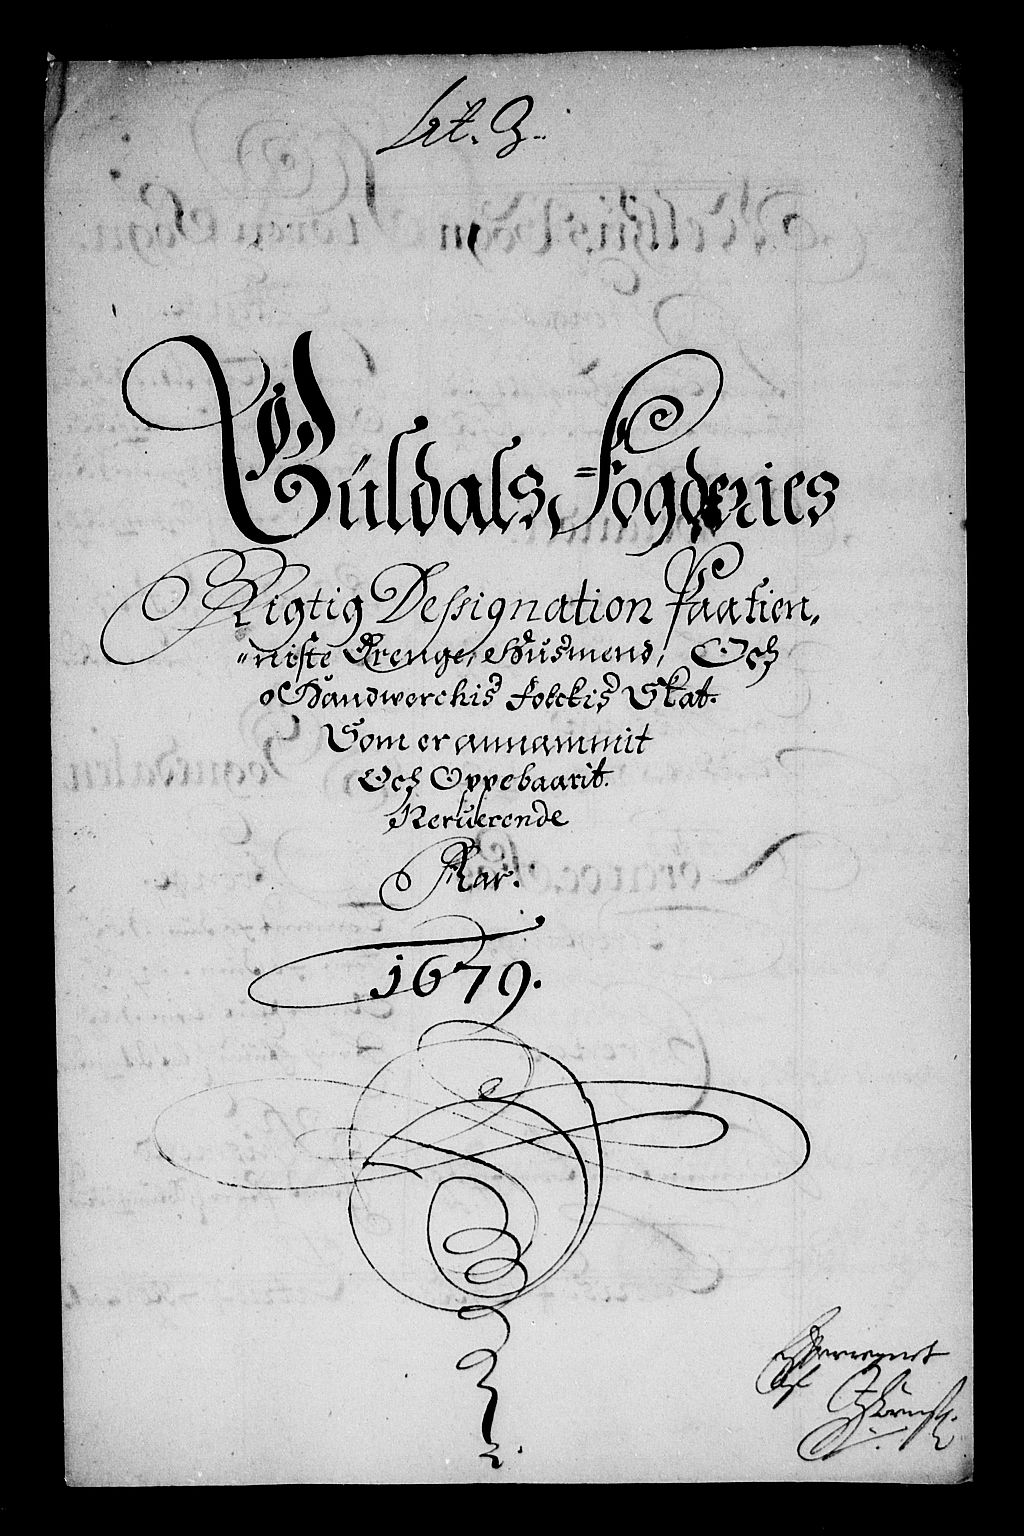 Lit. G.
Güldals Fogderies
Rigtig Dessignation Paa tien,
"niste Drenge, Husmend, Och
Handwerchis folckis Skat.
Som er annammit
Och Oppebaarit.
Reruerende
Aar.
1679.
Offverregnet
Af